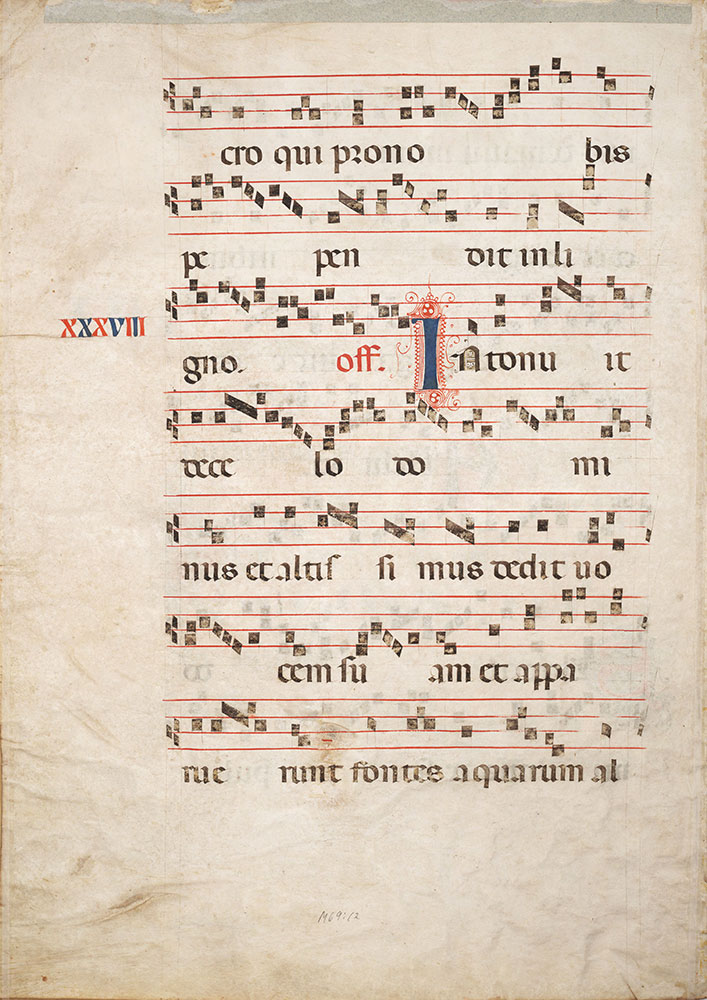 cro qui pro no bis
pe pen dit in li
XXXVIII
gno. off. INtonu it
dece lo do mi
nus et altis si mus dedit uo
cem su am et appa
rue runt fontes aquarum al
M69:12